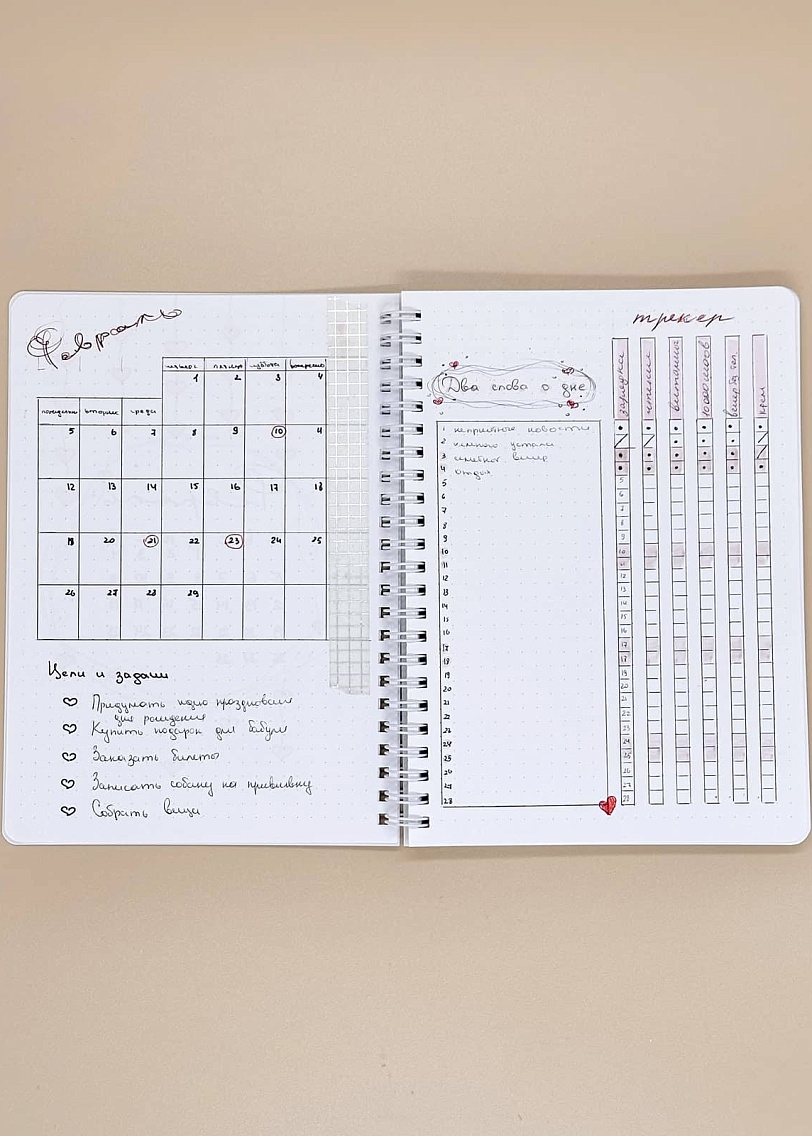 Февраль
четверг пятница суббота воскресенье
1 2 3 4
понедельник вторник среда
5 6 7 8 9 10 4
12 13 14 15 16 17 18
19 20 21 22 23 24 25
26 27 28 29
Цели и задачи
Придумать идею празднования
дня рождения
Купить подарок для бабули
Заказать билеты
Записать собаку на прививку
Собрать вещи
Два слова о дне
1 неприятные новости
2 немного устали
3 вечер
4 отдых
5
6
7
8
9
10
11
12
13
14
15
16
17
18
19
20
21
22
23
24
25
26
27
28
трекер
зарядка
чтение
витамины
10000 шагов
вечер без тел.
крем
5
6
7
8
9
10
11
12
13
14
15
16
17
18
19
20
21
22
23
24
25
26
27
28